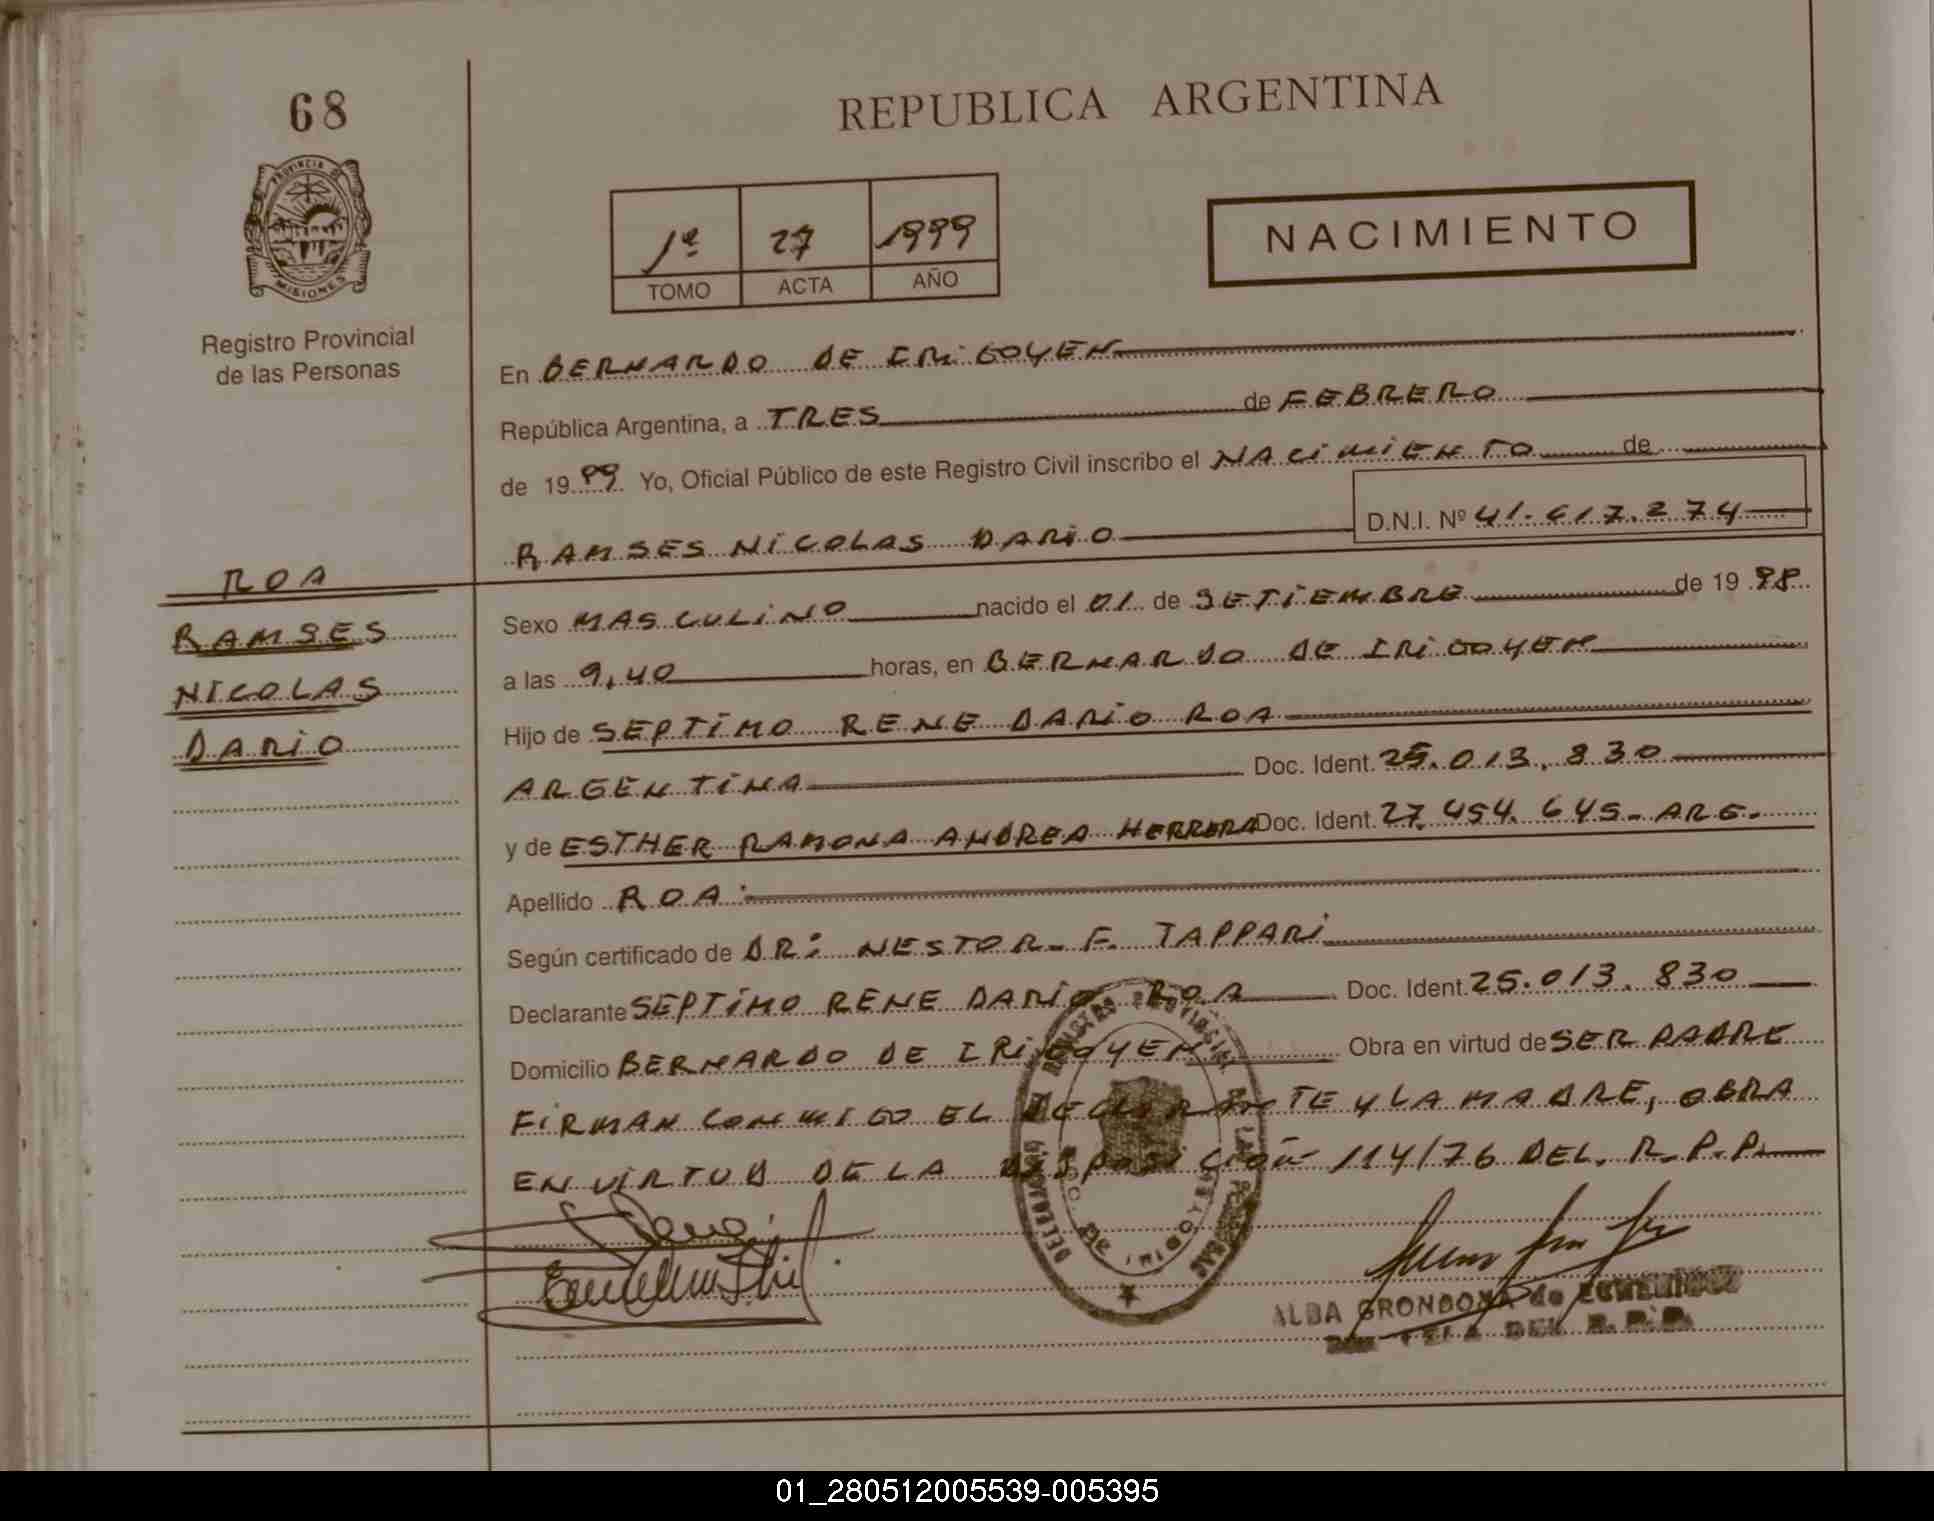 68
REPUBLICA ARGENTINA
PROVINCIA DE
MISIONES
Registro Provincial
de las Personas
1º 27 1999
TOMO ACTA AÑO
NACIMIENTO
En BERNARDO DE IRIGOYEN
República Argentina, a TRES de FEBRERO
de 1999 Yo, Oficial Público de este Registro Civil inscribo el NACIMIENTO de
RAMSES NICOLAS DARIO D.N.I. Nº 41.617.274
ROA
RAMSES
NICOLAS
DARIO
Sexo MASCULINO nacido el 01 de SETIEMBRE de 1998
a las 9,40 horas, en BERNARDO DE IRIGOYEN
Hijo de SEPTIMO RENE DARIO ROA
ARGENTINA Doc. Ident. 25.013.830
y de ESTHER RAMONA ANDREA HERRERA Doc. Ident. 27.454.645- ARG.
Apellido ROA
Según certificado de DR: NESTOR F. TAPPARI
Declarante SEPTIMO RENE DARIO ROA Doc. Ident. 25.013.830
Domicilio BERNARDO DE IRIGOYEN Obra en virtud de SER PADRE
FIRMAN CONMIGO EL DECLARANTE Y LA MADRE, OBRA
EN VIRTUD DE LA DISPOSICION 114/76 DEL. R.P.P.
ALBA GRONDONA de
DEL R.P.P.
01_280512005539-005395